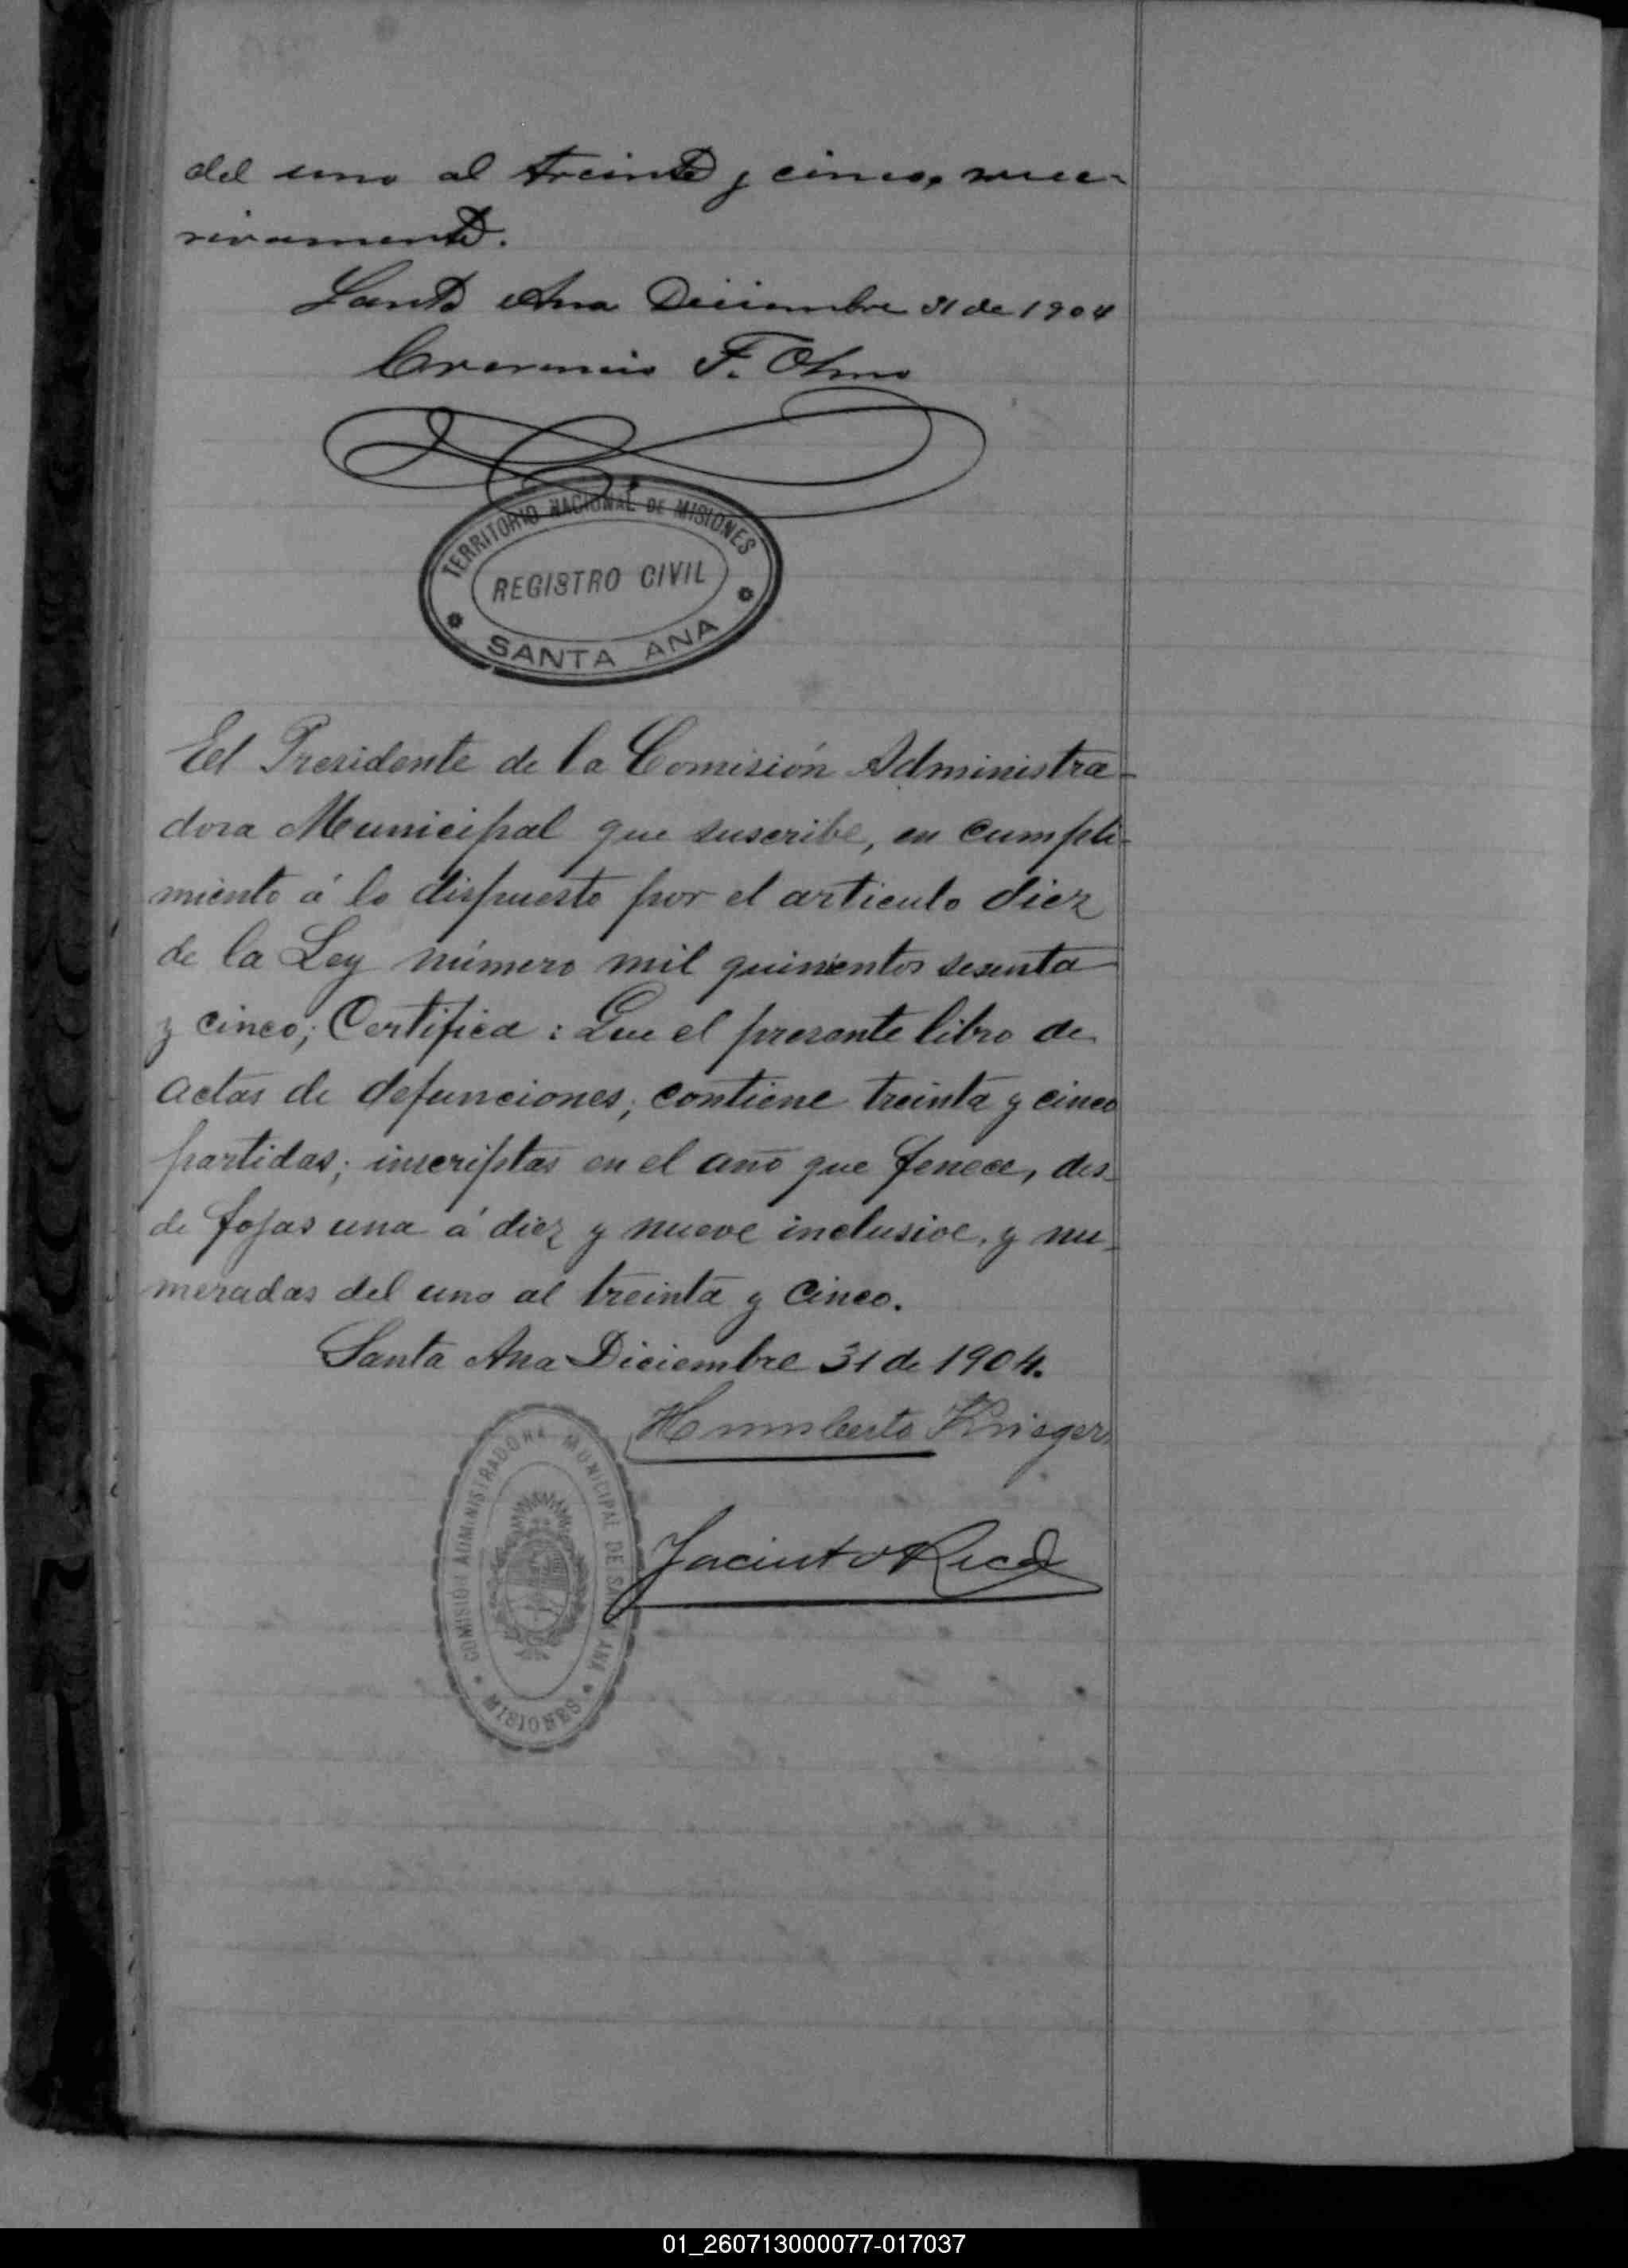 del uno al treinta y cinco, suce-
sivamente.
Santa Ana Diciembre 31 de 1904
F. Olmo
TERRITORIO NACIONAL DE MISIONES
REGISTRO CIVIL
SANTA ANA
El Presidente de la Comisión Administra-
dora Municipal que suscribe, en cumpli-
miento á lo dispuesto por el articulo diez
de la Ley número mil quinientos sesenta
y cinco; Certifica: Que el presente libro de
actas de defunciones; contiene treinta y cinco
partidas; inscriptas en el año que fenece, des-
de fojas una á diez y nueve inclusive, y nu-
meradas del uno al treinta y cinco.
Santa Ana Diciembre 31 de 1904.
Humberto Krieger
COMISIÓN ADMINISTRADORA MUNICIPAL DE SANTA ANA
MISIONES
Jacinto
01_260713000077-017037